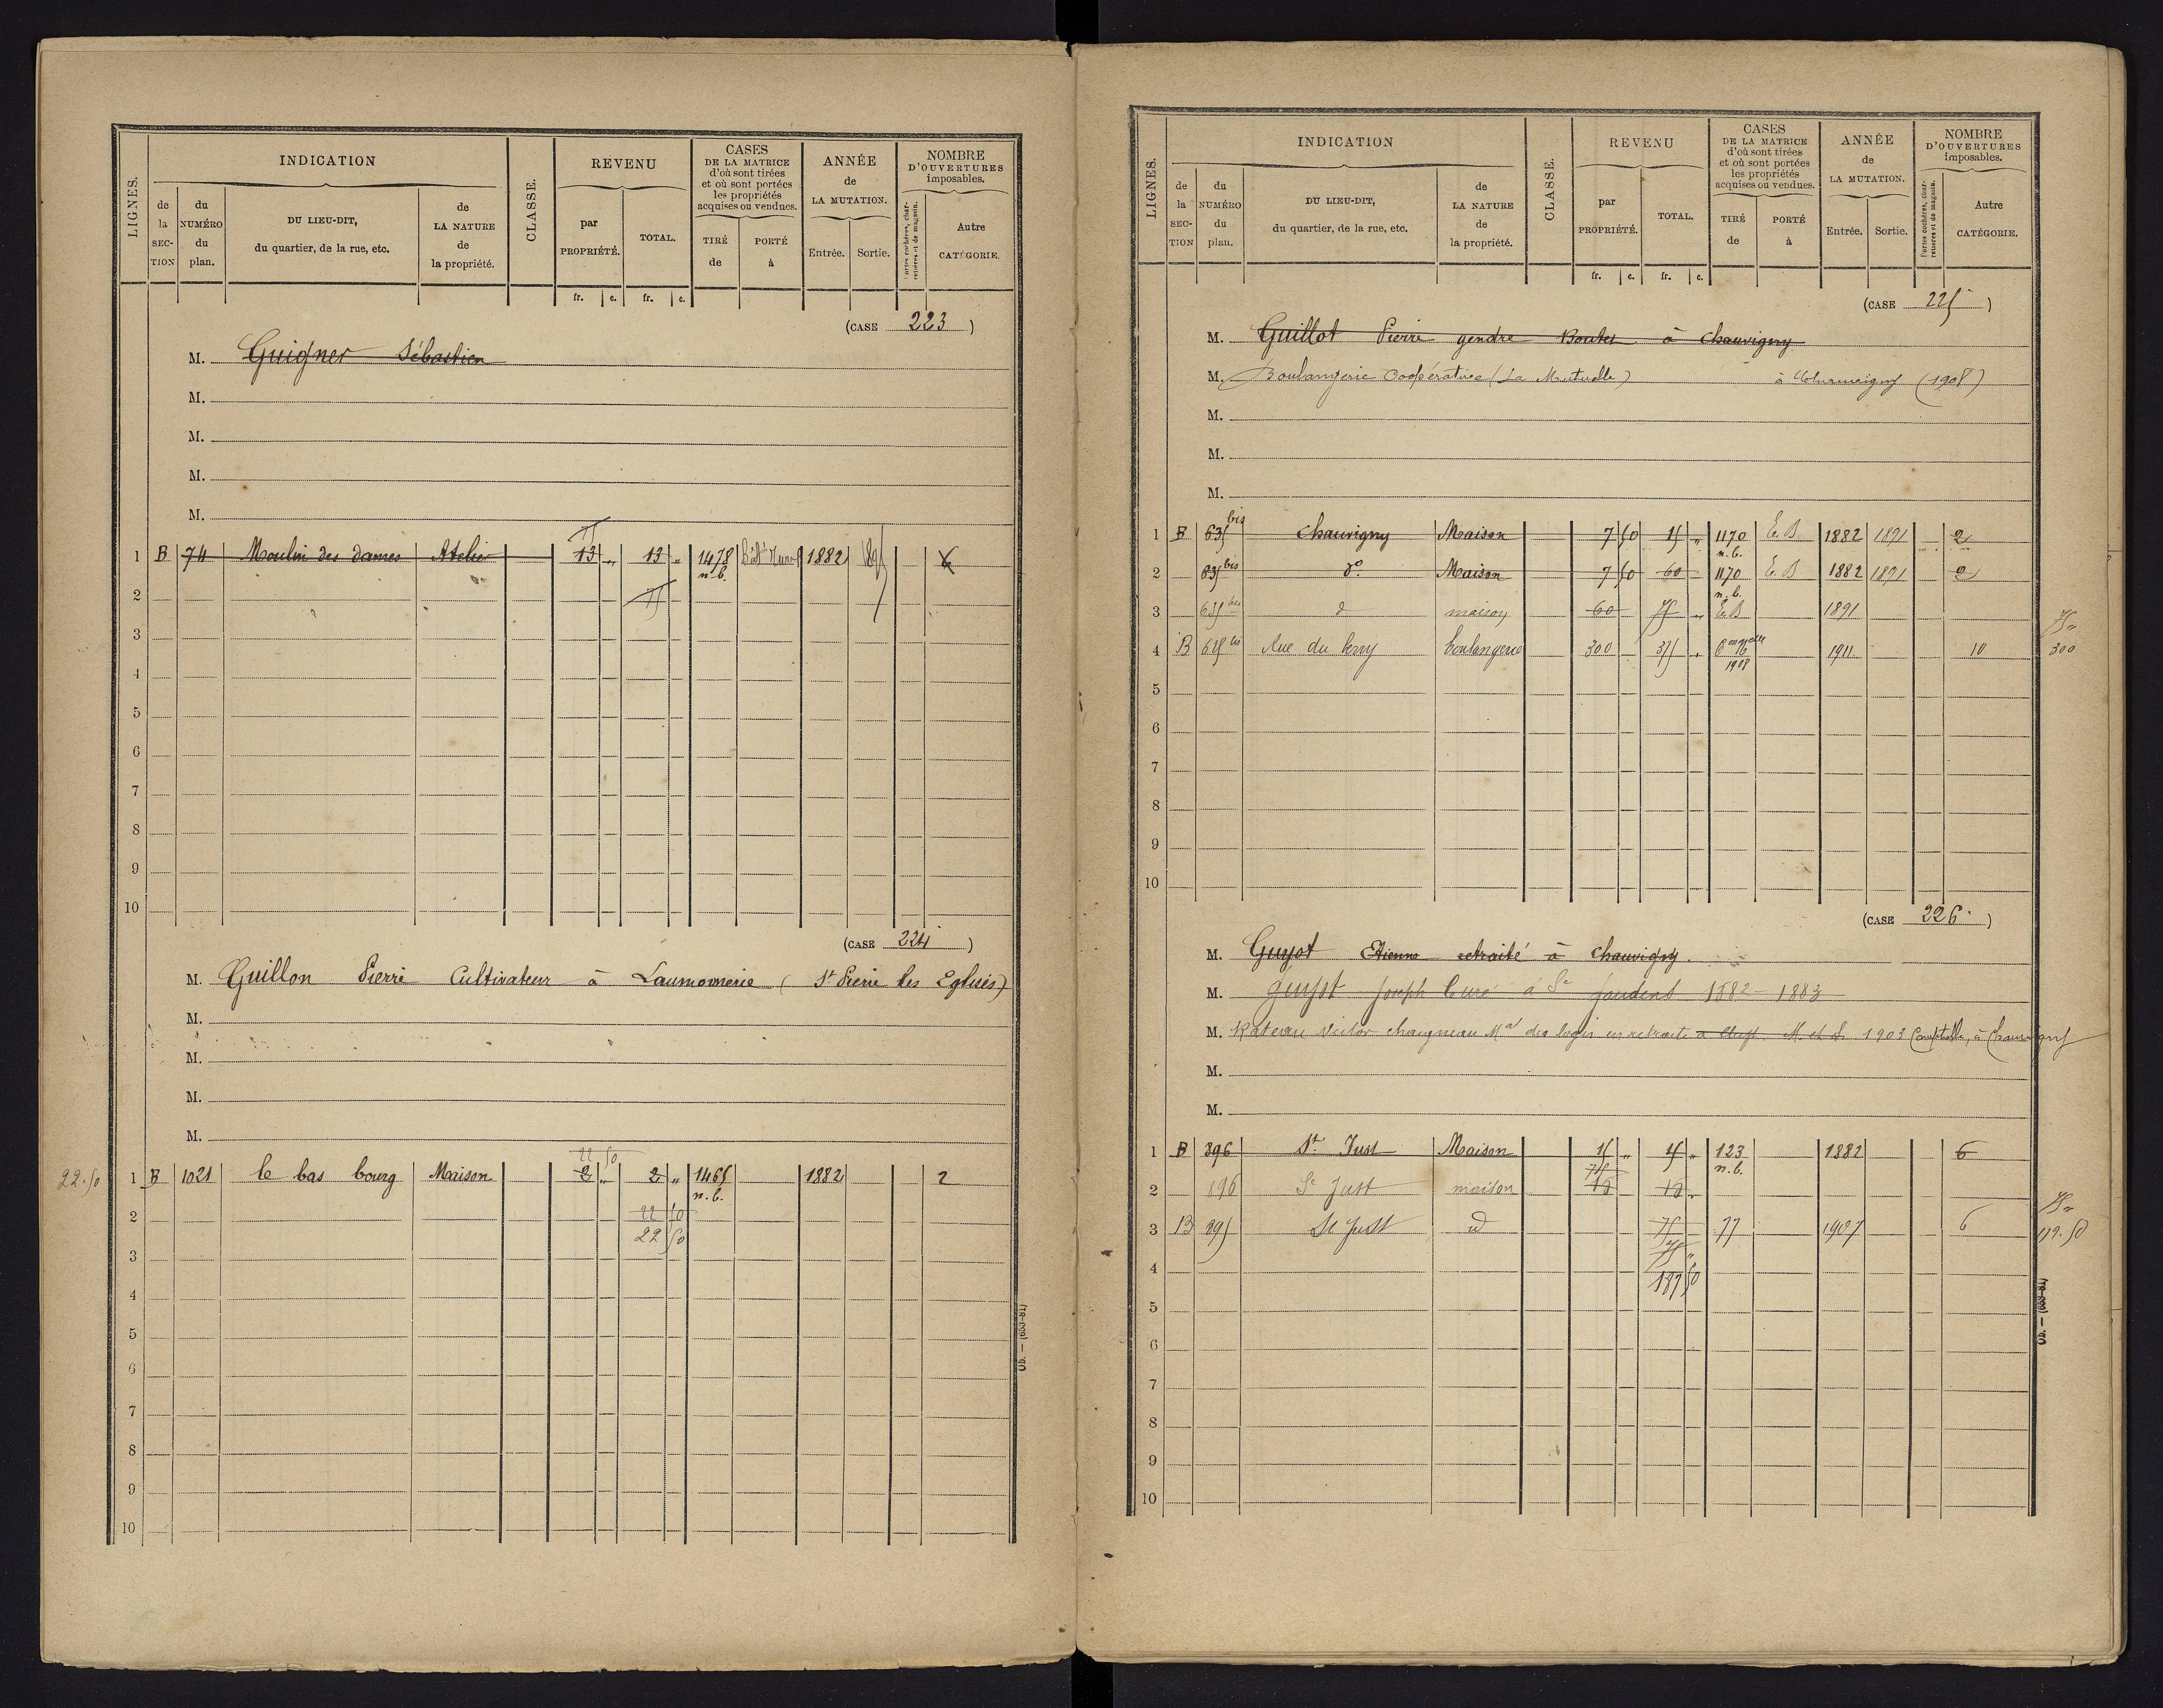 LIGNES.
INDICATION
de la SECTION
du NUMÉRO du plan.
DU LIEU-DIT, du quartier, de la rue, etc.
de LA NATURE de la propriété.
CLASSE.
REVENU
par PROPRIÉTÉ.
TOTAL.
CASES DE LA MATRICE d'où sont tirées et où sont portées les propriétés acquises ou vendues.
TIRÉ de
PORTÉ à
ANNÉE de LA MUTATION.
Entrée.
Sortie.
NOMBRE D'OUVERTURES imposables.
Portes cochères, charretières et de magasin.
Autre CATÉGORIE.
fr. c. fr. c.
(CASE 223)
M. Guigner Sébastien
M.
M.
M.
M.
75
1 B 74 Moulin des dames Atelier 13 " 13 " 1478 n.b. 1882 1895
2 75
3
4
5
6
7
8
9
10
(CASE 224)
M. Guillon Pierre Cultivateur à Laumonnerie (St Pierre les Eglises)
M.
M.
M.
M.
22 50
22.50 1 B 1021 le bas bourg Maison 2 " 2 " 1465 n.b. 1882 2
2 22 50
22 50
3
4
5
6
7
8
9
10
Ob. — (653-81)
LIGNES.
INDICATION
de la SECTION
du NUMÉRO du plan.
DU LIEU-DIT, du quartier, de la rue, etc.
de LA NATURE de la propriété.
CLASSE.
REVENU
par PROPRIÉTÉ.
TOTAL.
CASES DE LA MATRICE d'où sont tirées et où sont portées les propriétés acquises ou vendues.
TIRÉ de
PORTÉ à
ANNÉE de LA MUTATION.
Entrée.
Sortie.
NOMBRE D'OUVERTURES imposables.
Portes cochères, charretières et de magasin.
Autre CATÉGORIE.
fr. c. fr. c.
(CASE 225)
M. Guillot Pierre gendre Boutet à Chauvigny
M. Boulangerie Coopérative (La Mutuelle) à Chauvigny (1908)
M.
M.
M.
1 B 635 bis Chauvigny Maison 7 50 15 " 1170 n.b. E.B 1882 1891 2
2 635 bis do. Maison 7 50 60 1170 n.b. E.B 1882 1891 2
3 635 bis d maison 60 75 " E.B 1891 75 "
4 B 625 bis Rue du Berry boulangerie 300 375 " 1908 1911 10 300
5
6
7
8
9
10
(CASE 226)
M. Guyot Etienne retraité à Chauvigny.
M. Guyot Joseph Curé à St Gaudent 1882-1883
M. Rateau Victor Chaigneau Mal des logis en retraite 1903 Comptable, à Chauvigny
M.
M.
1 B 896 St Just Maison 15 " 15 " 123 n.b. 1882 6
75
2 896 St Just maison 18 18 " 75 "
3 B 895 St Just id 75 77 1907 6 112.50
75 "
4 187 50
5
6
7
8
9
10
Ob. — (653-81)